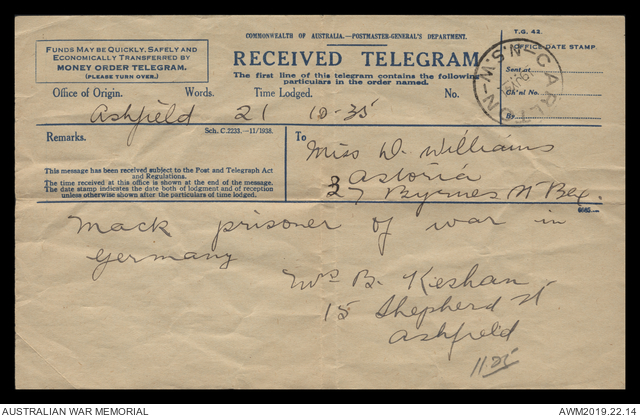 COMMONWEALTH OF AUSTRALIA.—POSTMASTER-GENERAL'S DEPARTMENT.
T.G. 42.
FUNDS MAY BE QUICKLY, SAFELY AND
ECONOMICALLY TRANSFERRED BY
MONEY ORDER TELEGRAM.
(PLEASE TURN OVER.)
RECEIVED TELEGRAM
The first line of this telegram contains the following
particulars in the order named.
OFFICE DATE STAMP
CARLTON-N.S.W
Sent at
Ch'nl No.
By
Office of Origin. Words. Time Lodged. No.
Ashfield 21 10-35
Remarks.
Sch. C.2233.—11/1938.
To
Miss D. Williams
Astoria
27 Byrnes St Bex.
This message has been received subject to the Post and Telegraph Act
and Regulations.
The time received at this office is shown at the end of the message.
The date stamp indicates the date both of lodgment and of reception
unless otherwise shown after the particulars of time lodged.
Mack prisoner of war in
Germany
Mrs B. Keshan
15 Shepherd St
Ashfield
1125
AUSTRALIAN WAR MEMORIAL
AWM2019.22.14